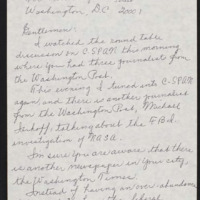 Washington, DC 20001
Gentlemen:
I watched the round table
discussion on C-SPAN this morning
where you had three journalists from
the Washington Post.
This evening I tuned into C-SPAN
again, and there is another journalist
from the Washington Post, Michael
Isikoff, talking about the F.B.I.
investigation of NASA.
I'm sure you are aware that there
is another newspaper in your city,
the Washington Times.
Instead of having an over-abundance
the liberal